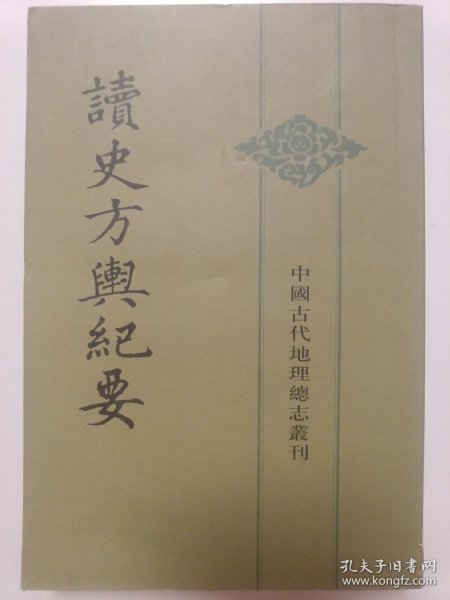 讀史方輿紀要
中國古代地理總志叢刊
孔夫子旧书网
www.kongfz.com